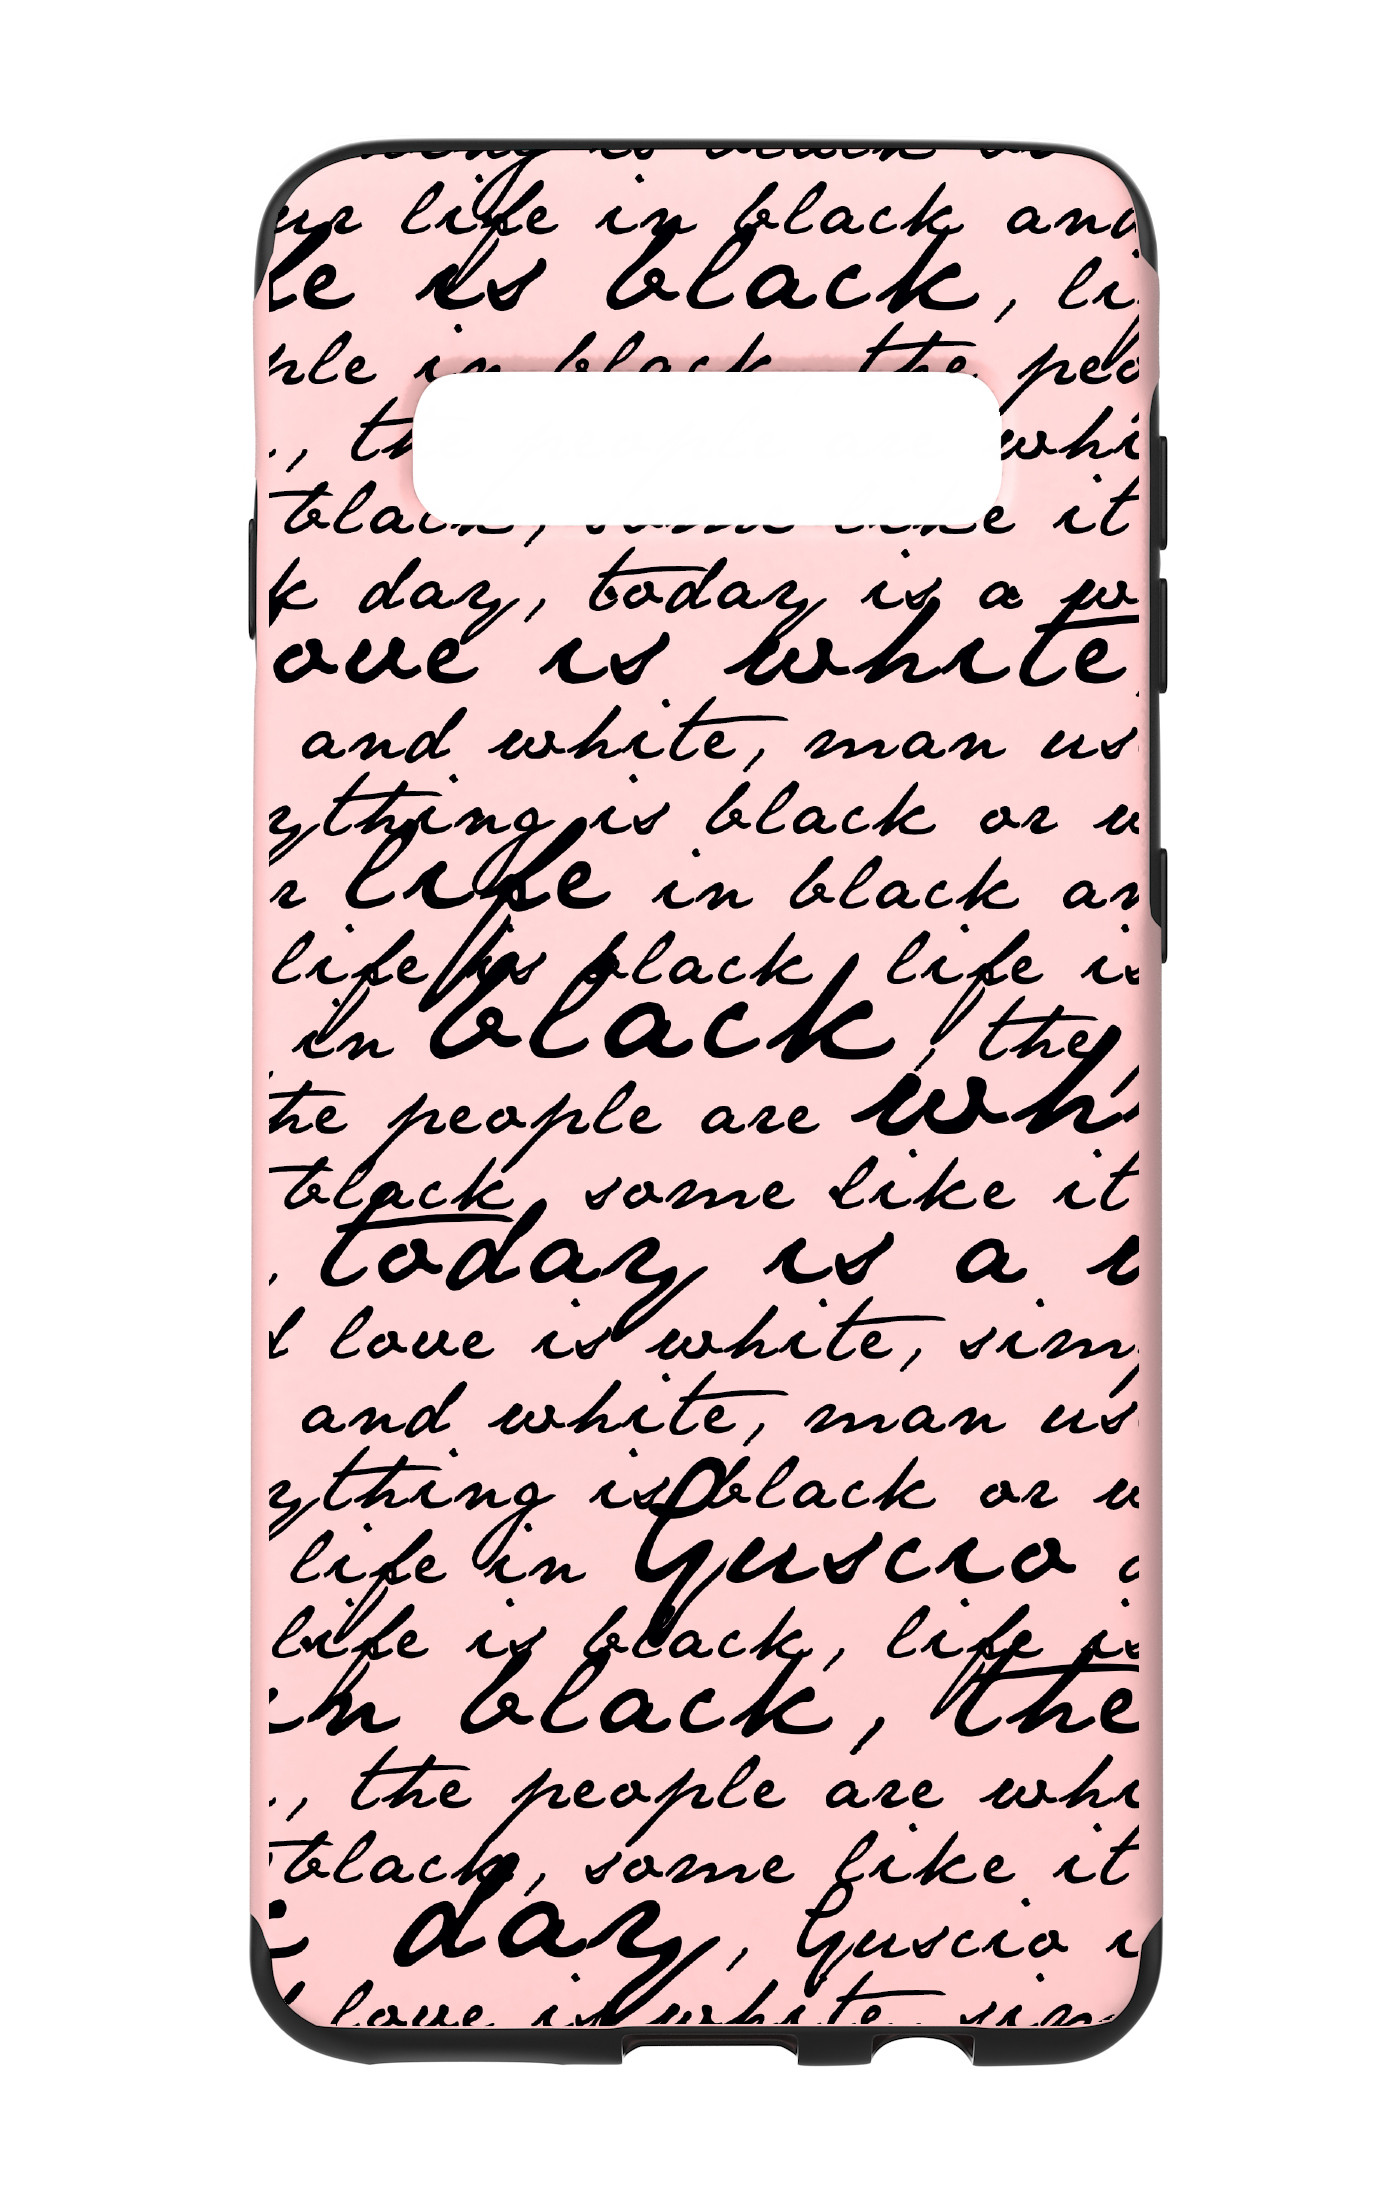 life in black and
is black, li
in black, the peo
, th whi
black, some like it
k day, today is a w
ove is white,
and white, man us
ything is black or w
r life in black an
life is black, life is
in black, the
the people are wh
black, some like it
, today is a w
d love is white, sim
and white, man us
ything is black or w
life in Guscio a
life is black, life is
in black, the
, the people are whi
black, some like it
day, Guscio i
love is white, sim